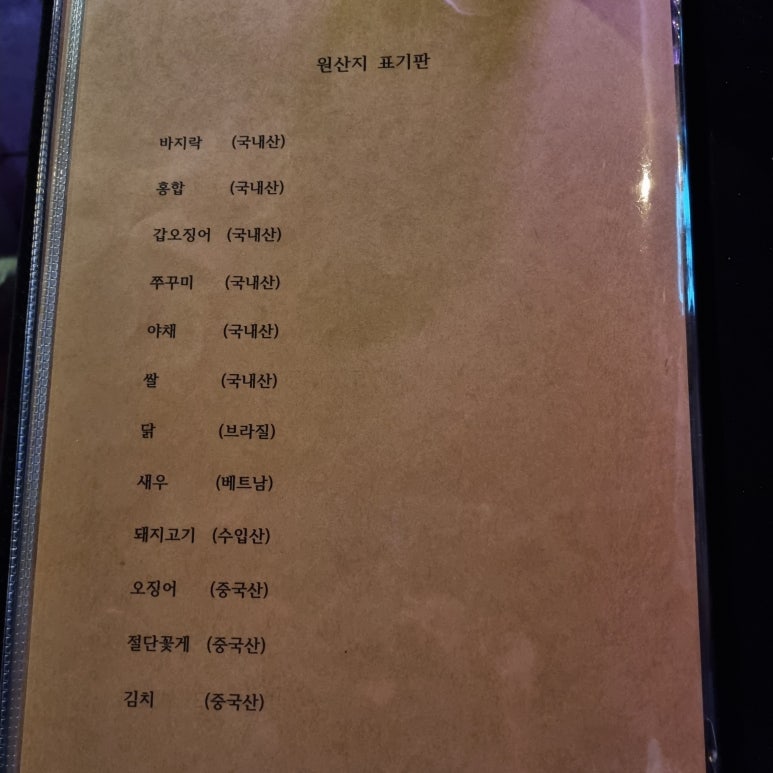 원산지 표기판
바지락 (국내산)
홍합 (국내산)
갑오징어 (국내산)
쭈꾸미 (국내산)
야채 (국내산)
쌀 (국내산)
닭 (브라질)
새우 (베트남)
돼지고기 (수입산)
오징어 (중국산)
절단꽃게 (중국산)
김치 (중국산)